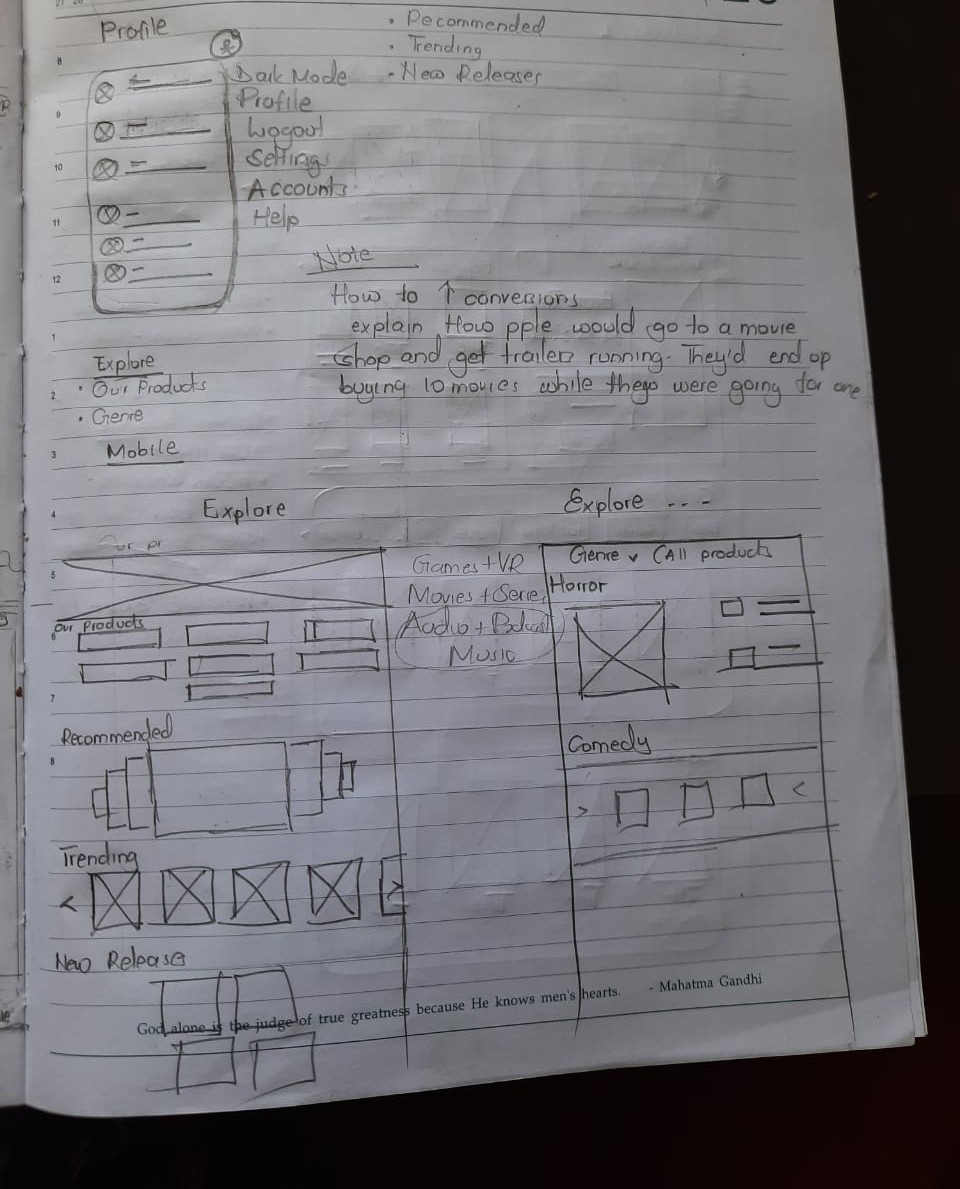 Profile
• Recommended
• Trending
• New Releases
Dark Mode
Profile
Logout
Settings
Accounts
Help
8
9
10
11
12
1
2
3
4
5
6
7
8
Note
How to ↑ conversions
explain How pple would go to a movie
shop and get trailers running. They'd end up
buying 10 movies while they were going for one
Explore
• Our Products
• Genre
Mobile
Explore
Our pr
Our Products
Recommended
Trending
< >
New Release
Games + VR
Movies + Serie
Audio + Podcast
Music
Explore - - -
Genre v (All products
Horror
Comedy
> <
God alone is the judge of true greatness because He knows men's hearts. - Mahatma Gandhi